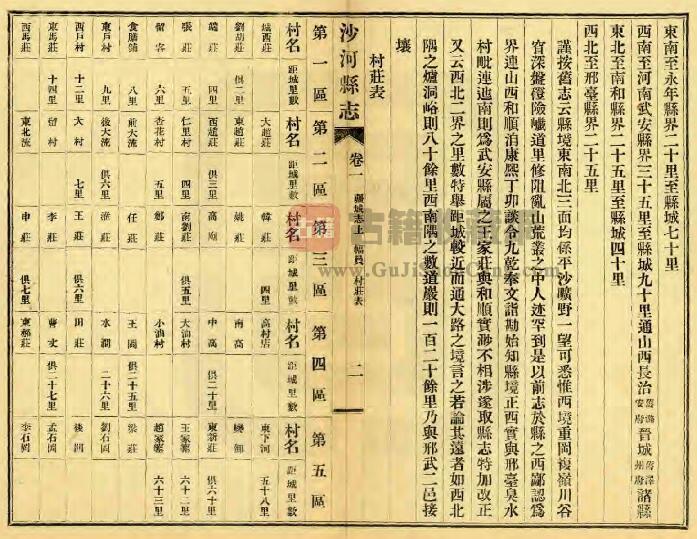 東南至永年縣界二十里至縣城七十里
西南至河南武安縣界三十五里至縣城九十里通山西長治舊潞安府晉城舊澤州府諸縣
東北至南和縣界二十五里至縣城四十里
西北至邢臺縣界二十五里
謹按舊志云縣境東南北三面均係平沙曠野一望可悉惟西境重岡複嶺川谷
窅深盤磴險巇道里修阻亂山荒叢之中人迹罕到是以前志於縣之西鄙認爲
界連山西和順洎康熙丁卯談令九乾奉文詣勘始知縣境正西實與邢臺臬水
村毗連迤南則爲武安縣屬之王家莊與和順實渺不相涉遂取縣志特加改正
又云西北二界之里數特舉距城較近而通大路之境言之若論其遠者如西北
隅之爐洞峪則八十餘里西南隅之數道巖則一百二十餘里乃與邢武二邑接
壤
村莊表
沙河縣志 卷一 疆域志上 幅員 村莊表 二
第一區 第二區 第三區 第四區 第五區
村名 距城里數 村名 距城里數 村名 距城里數 村名 距城里數 村名 距城里數
城西莊 大趙莊 韓莊 四里 高村店 東下河 五十八里
劉胡莊 俱二里 東趙莊 姚莊 南高
端莊 四里 西趙莊 俱三里 高廟 中高 俱二十里 東新莊 俱六十里
張莊 五里 仁里村 四里 南劉莊 俱五里 大油村 六十二里
留客 六里 杏花村 五里 鄭莊 小油村 六十三里
食膳鋪 八里 前大流 任莊 王岡 俱二十五里 欒莊
東戶村 九里 後大流 俱六里 水澗 二十六里 劉石岡
西戶村 十二里 大村 七里 王莊 俱六里 田莊 後澗
東馬莊 十四里 留村 李莊 曹莊 俱二十七里 孟石岡
西馬莊 東北流 申莊 俱七里 東郝莊 李石岡
www.GuJiShouCang.Com